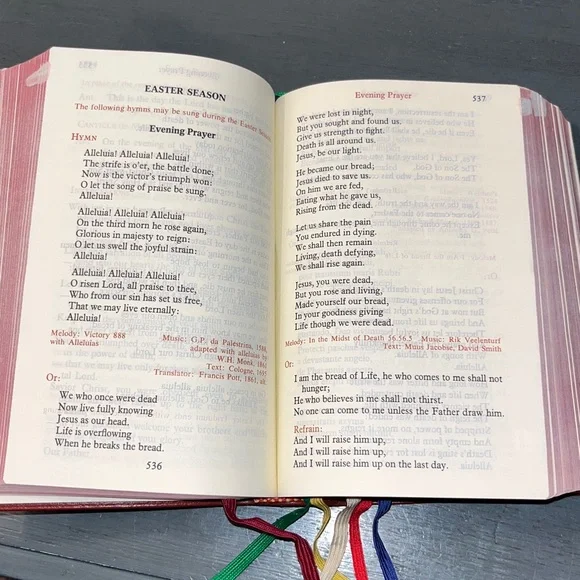 EASTER SEASON
The following hymns may be sung during the Easter Season.
Evening Prayer
HYMN
Alleluia! Alleluia! Alleluia!
The strife is o'er, the battle done;
Now is the victor's triumph won:
O let the song of praise be sung.
Alleluia!
Alleluia! Alleluia! Alleluia!
On the third morn he rose again,
Glorious in majesty to reign:
O let us swell the joyful strain:
Alleluia!
Alleluia! Alleluia! Alleluia!
O risen Lord, all praise to thee,
Who from our sin has set us free,
That we may live eternally:
Alleluia!
Melody: Victory 888
with Alleluias
Music: G.P. da Palestrina, 1588,
adapted with alleluias by
W.H. Monk, 1861
Text: Cologne, 1695
Translator: Francis Pott, 1861, alt.
Or:
We who once were dead
Now live fully knowing
Jesus as our head,
Life is overflowing
When he breaks the bread.
536
Evening Prayer 537
We were lost in night,
But you sought and found us.
Give us strength to fight.
Death is all around us.
Jesus, be our light.
He became our bread;
Jesus died to save us.
On him we are fed,
Eating what he gave us,
Rising from the dead.
Let us share the pain
You endured in dying.
We shall then remain
Living, death defying,
We shall rise again.
Jesus, you were dead,
But you rose and living,
Made yourself our bread,
In your goodness giving
Life though we were dead.
Melody: In the Midst of Death 56.56.5 Music: Rik Veelenturf
Text: Muus Jacobse, David Smith
Or:
I am the bread of Life, he who comes to me shall not
hunger;
He who believes in me shall not thirst.
No one can come to me unless the Father draw him.
Refrain:
And I will raise him up,
And I will raise him up,
And I will raise him up on the last day.